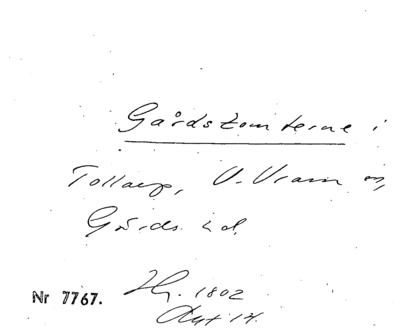 Gårdstomterne i
Tollarp, V. Vram sn,
Gärds hd.
Nr 7767.
Hg. 1802
Akt 14.